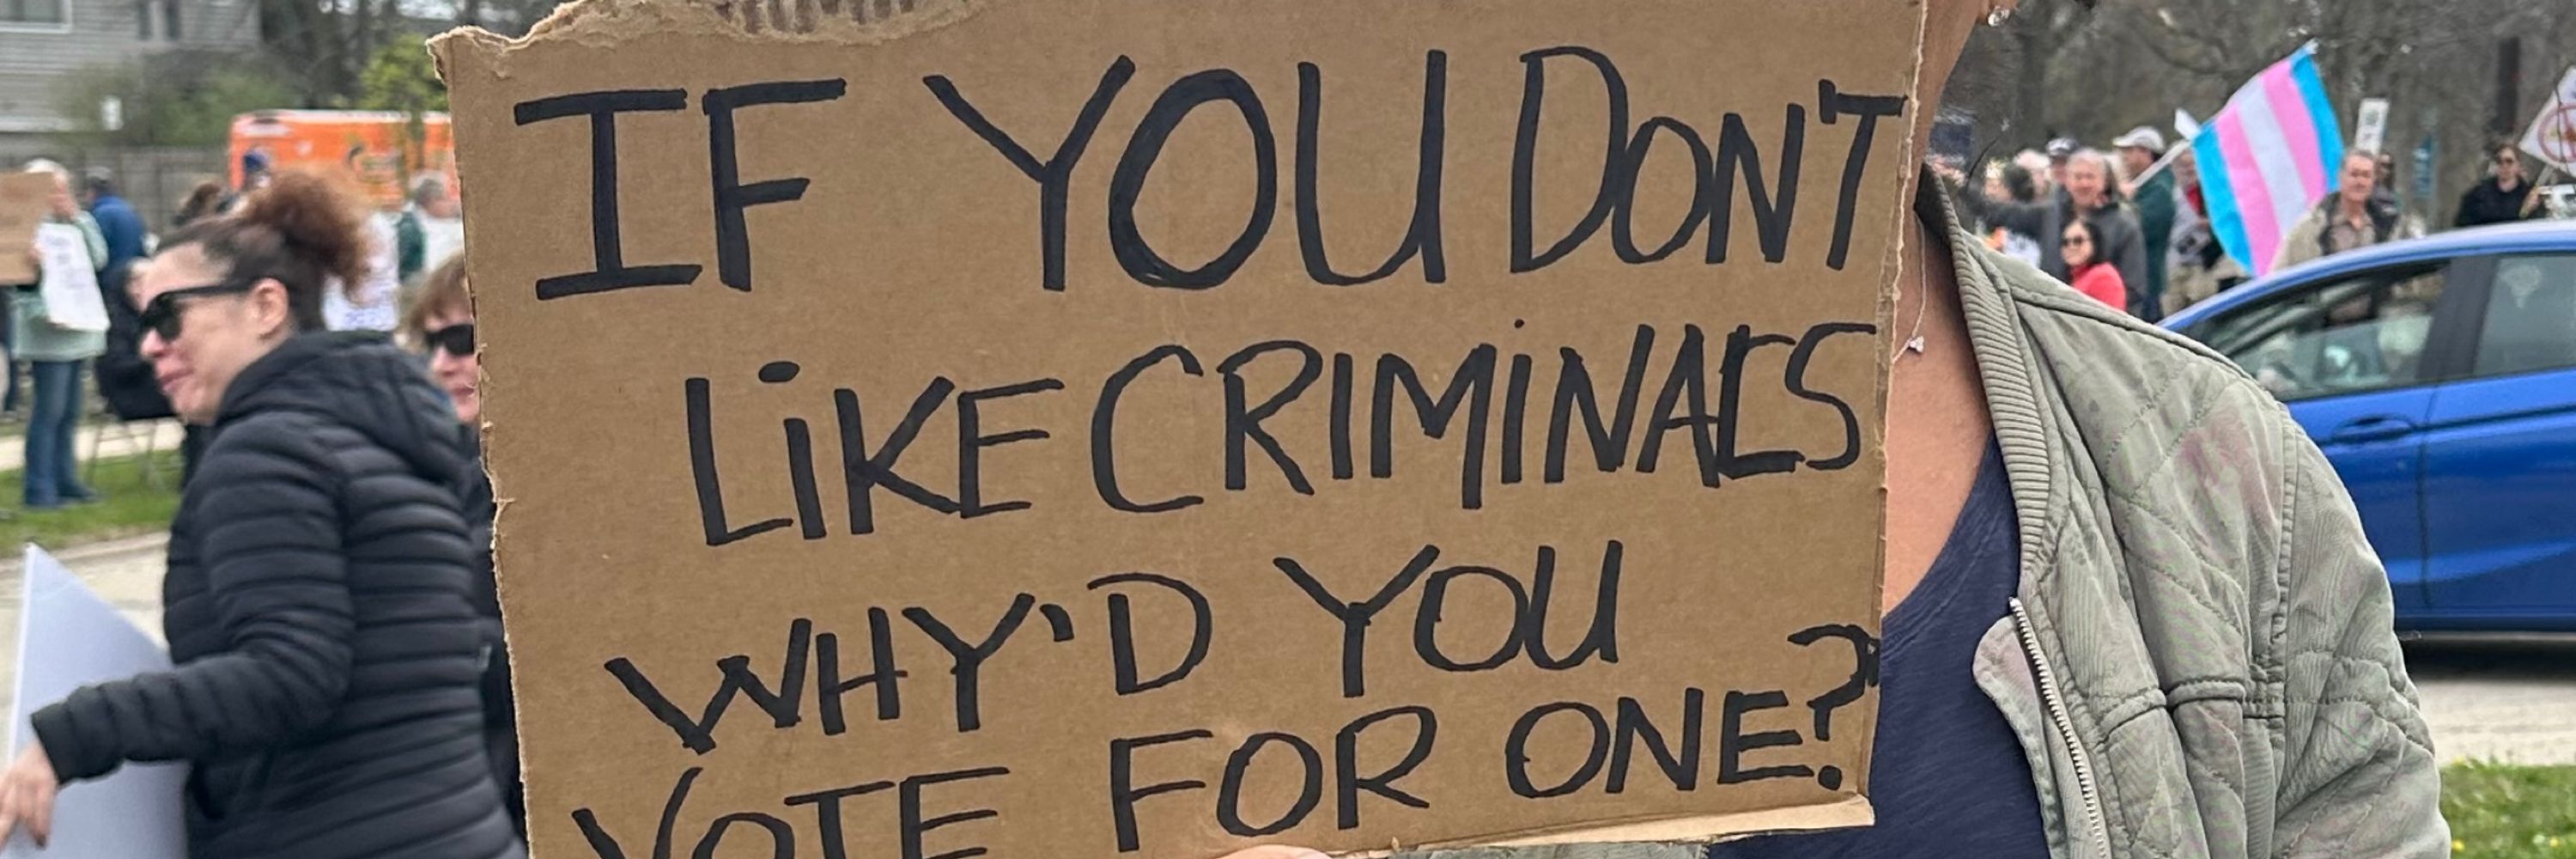 IF YOU DON'T
LiKE CRIMiNALS
WHY'D YOU
VOTE FOR ONE?